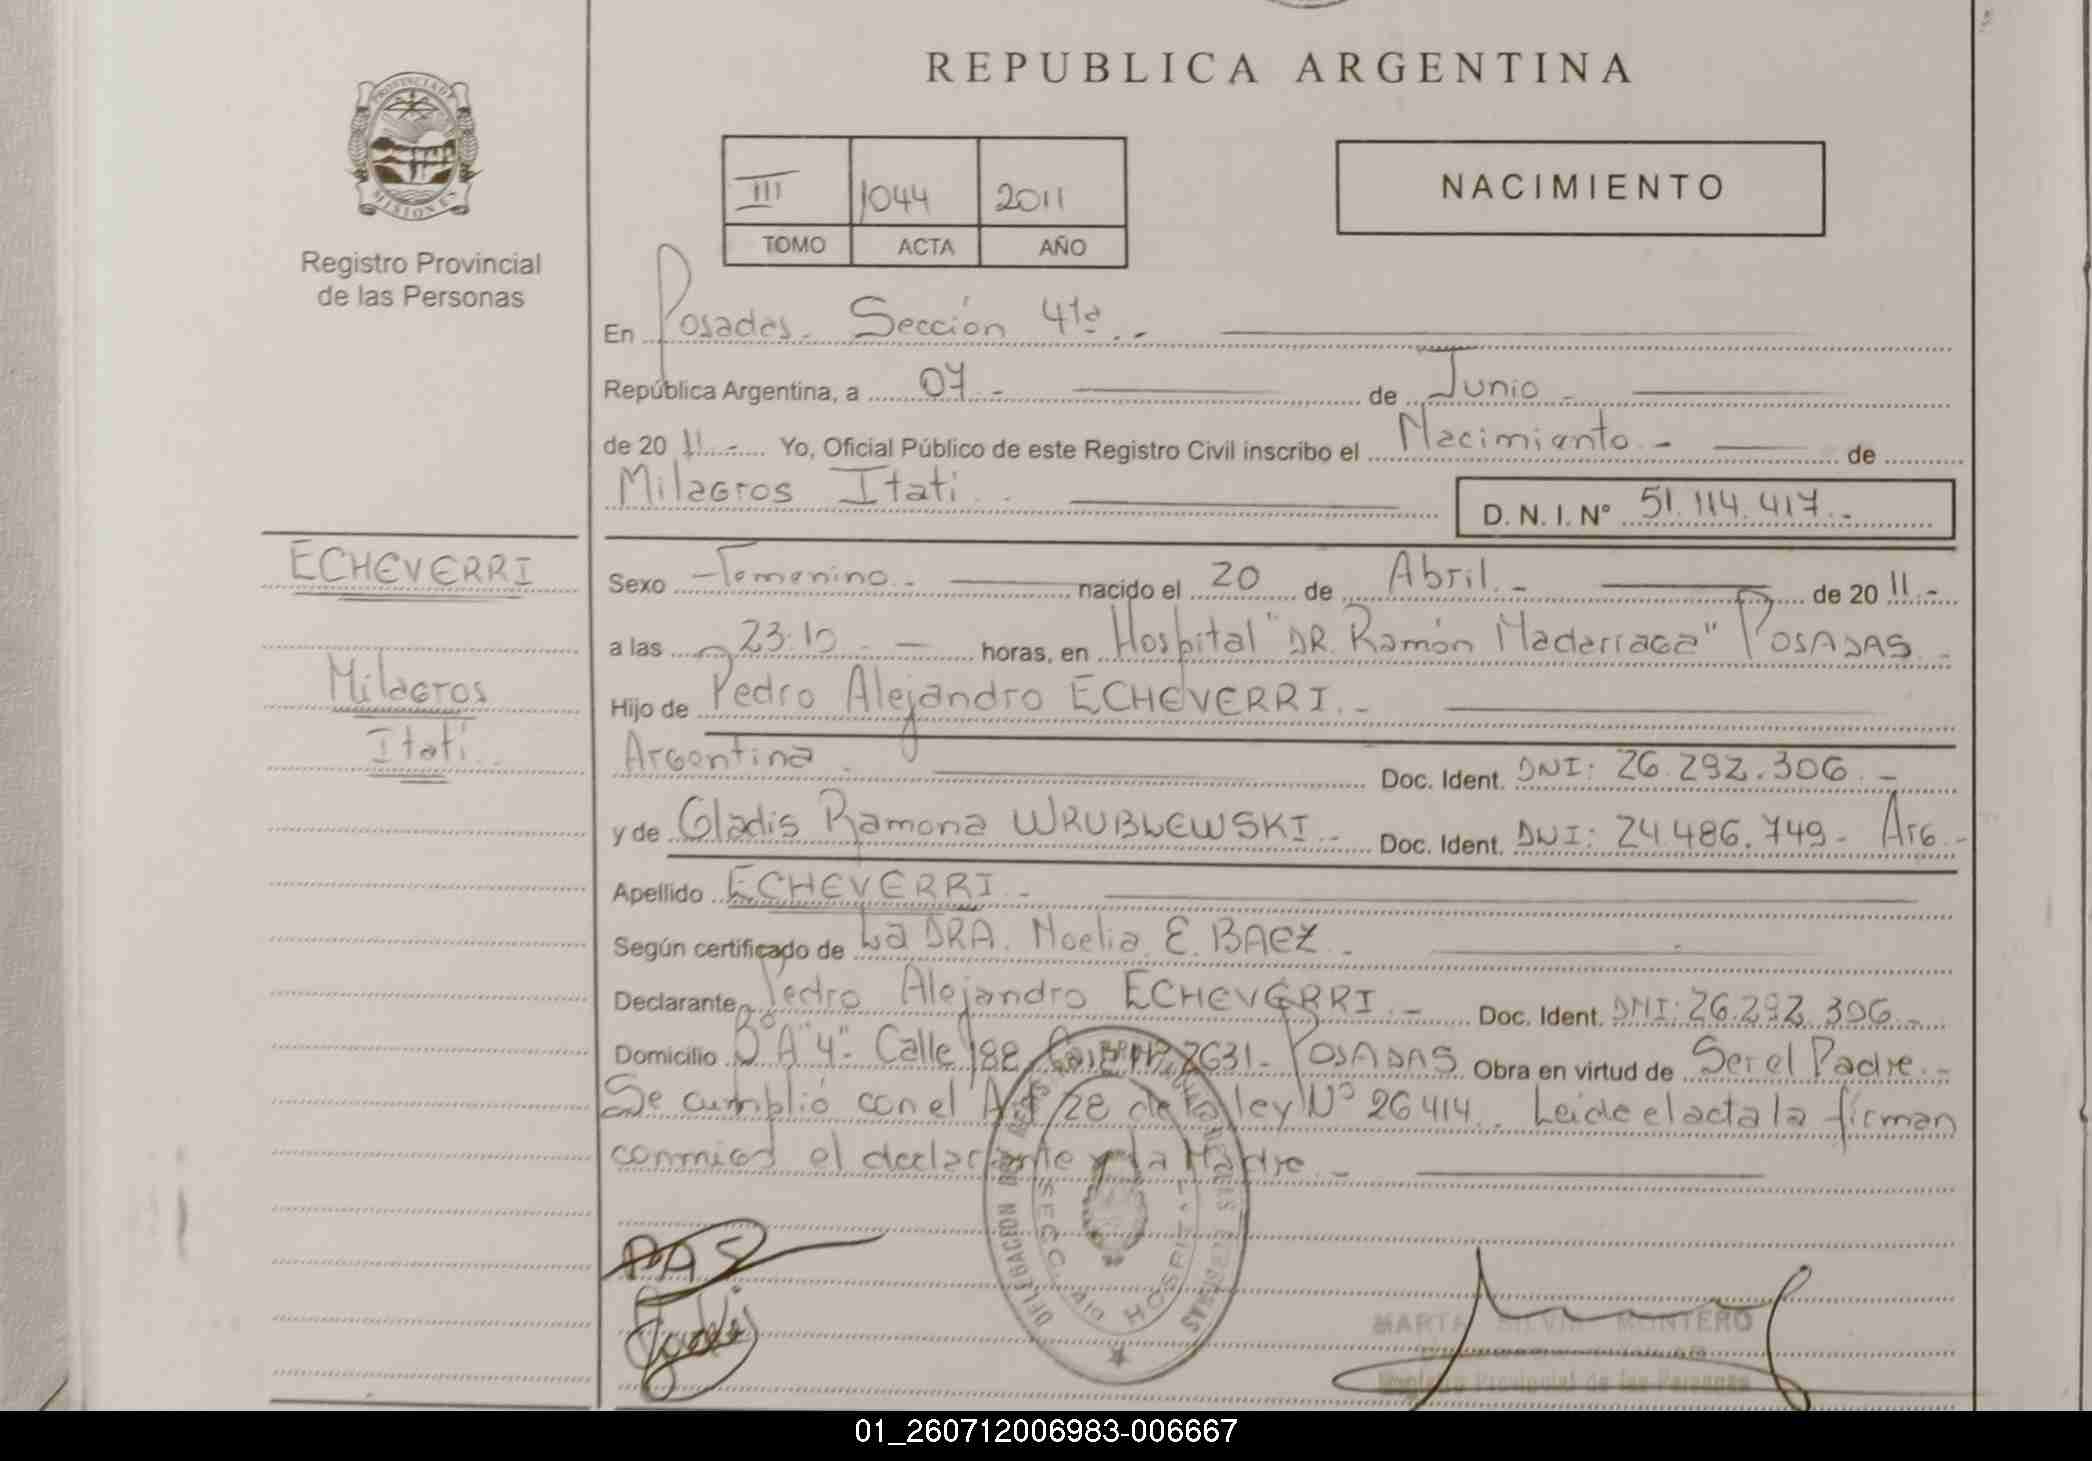 REPUBLICA ARGENTINA
PROVINCIA DE
MISIONES
Registro Provincial
de las Personas
III 1044 2011
TOMO ACTA AÑO
NACIMIENTO
En Posadas. Sección 4ta. -
República Argentina, a 07 - de Junio -
de 20 11.- Yo, Oficial Público de este Registro Civil inscribo el Nacimiento - de
Milagros Itatí. D. N. I. Nº 51.114.417.-
ECHEVERRI
Milagros
Itatí.
Sexo Femenino. nacido el 20 de Abril.- de 20 11.-
a las 23:10 - horas, en Hospital "DR. Ramón Madariaga" POSADAS.-
Hijo de Pedro Alejandro ECHEVERRI.-
Argentina. Doc. Ident. DNI: 26.292.306.-
y de Gladis Ramona WRUBLEWSKI. Doc. Ident. DNI: 24.486.749- Arg.-
Apellido ECHEVERRI.-
Según certificado de La DRA. Noelia E. BAEZ.-
Declarante Pedro Alejandro ECHEVERRI.- Doc. Ident. DNI: 26.292.306.-
Domicilio Bº A "4". Calle 188 2631- POSADAS Obra en virtud de Ser el Padre.-
Se cumplió con el Art 28 de la ley Nº 26414.. Leide el acta la firman
conmigo el declarante y la Madre.-
DELEGACION
SECC.
HOSPITAL
MARTA SILVIA MONTERO
Registro Provincial de las Personas
01_260712006983-006667